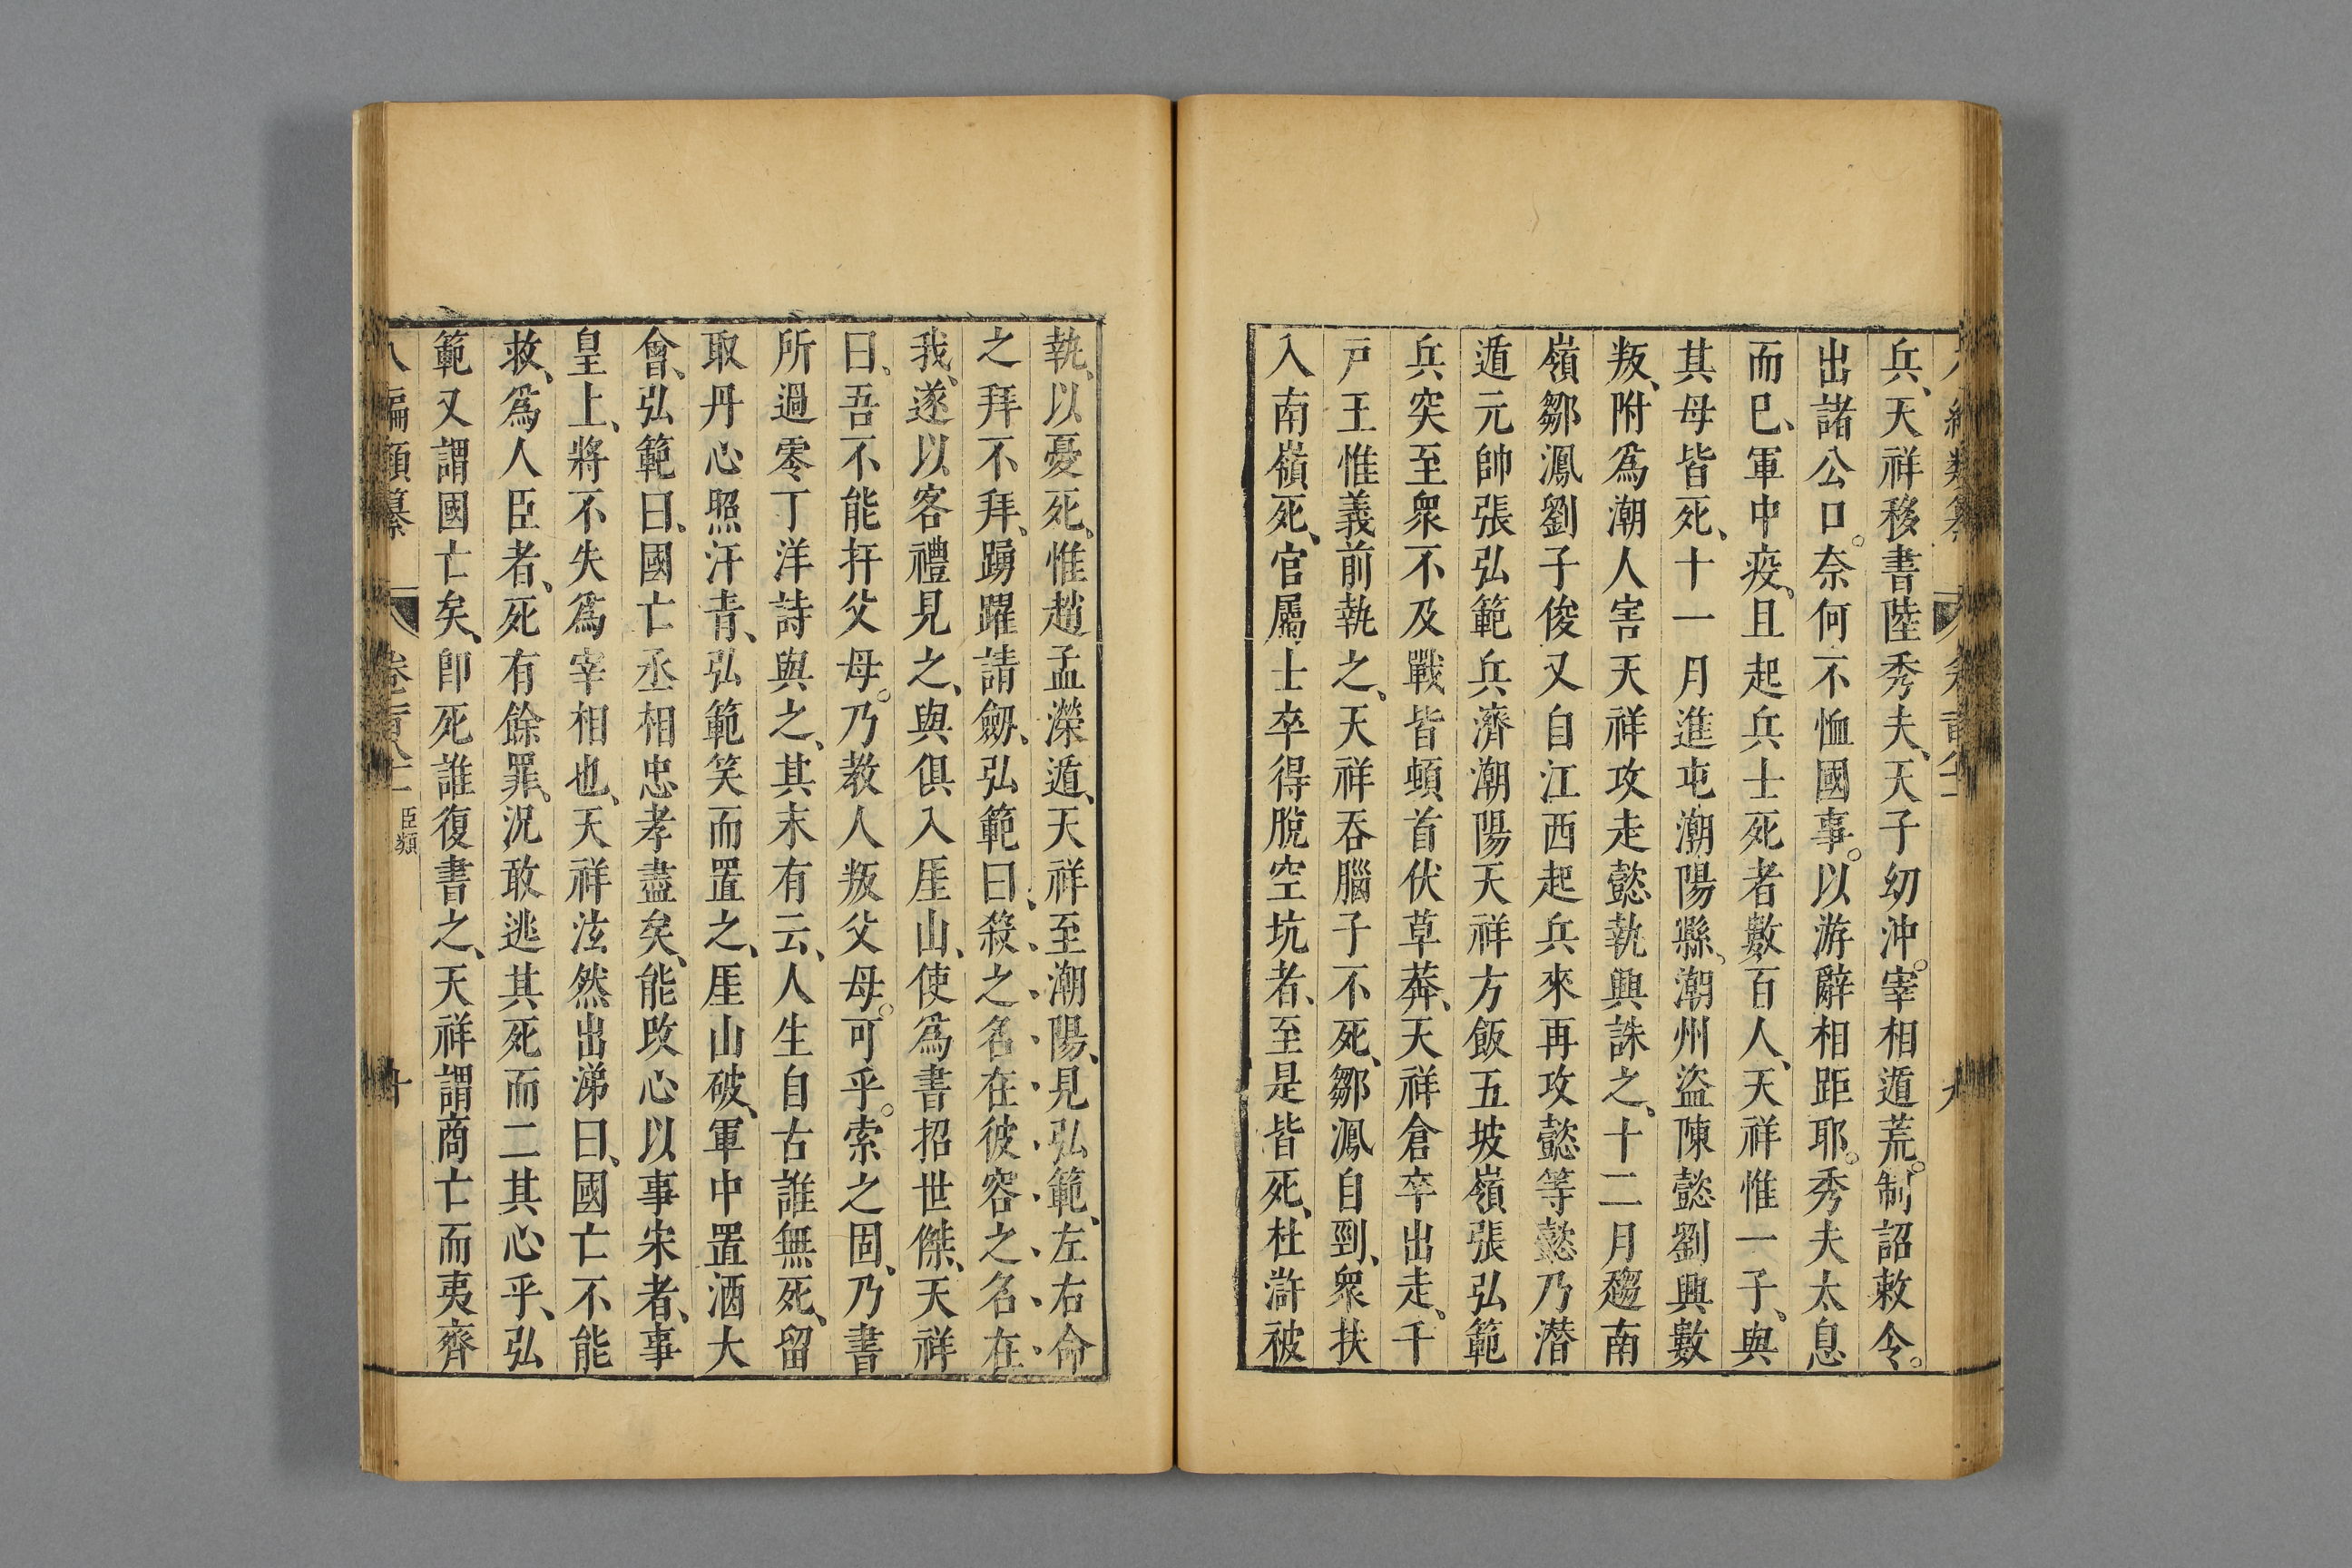 兵、天祥移書陸秀夫、天子幼沖。宰相遁荒。制詔敕令。
出諸公口。奈何不恤國事。以游辭相距耶。秀夫太息
而已、軍中疫、且起兵士死者數百人、天祥惟一子、與
其母皆死、十一月進屯潮陽縣、潮州盜陳懿劉興數
叛、附爲潮人害天祥攻走懿執興誅之、十二月趨南
嶺鄒㵯劉子俊又自江西起兵來再攻懿等懿乃潛
遁元帥張弘範兵濟潮陽天祥方飯五坡嶺張弘範
兵突至衆不及戰皆頓首伏草莽、天祥倉卒出走、千
戸王惟義前執之、天祥吞腦子不死、鄒㵯自剄、衆扶
入南嶺死、官屬士卒得脫空坑者、至是皆死、杜滸被
執、以憂死、惟趙孟濚遁、天祥至潮陽、見弘範、左右命
之拜不拜、踴躍請劒、弘範曰、殺之、名在彼容之、名在
我、遂以客禮見之、與俱入厓山、使爲書招世傑、天祥
曰、吾不能扞父母。乃教人叛父母。可乎。索之固、乃書
所過零丁洋詩與之、其末有云、人生自古誰無死、留
取丹心照汗青、弘範笑而置之、厓山破、軍中置酒大
會、弘範曰、國亡丞相忠孝盡矣、能改心以事宋者、事
皇上、將不失爲宰相也、天祥泫然出涕曰、國亡不能
救、爲人臣者、死有餘罪、況敢逃其死而二其心乎、弘
範又謂國亡矣、即死誰復書之、天祥謂商亡而夷齊
八編類纂 卷二百八十 臣類 十